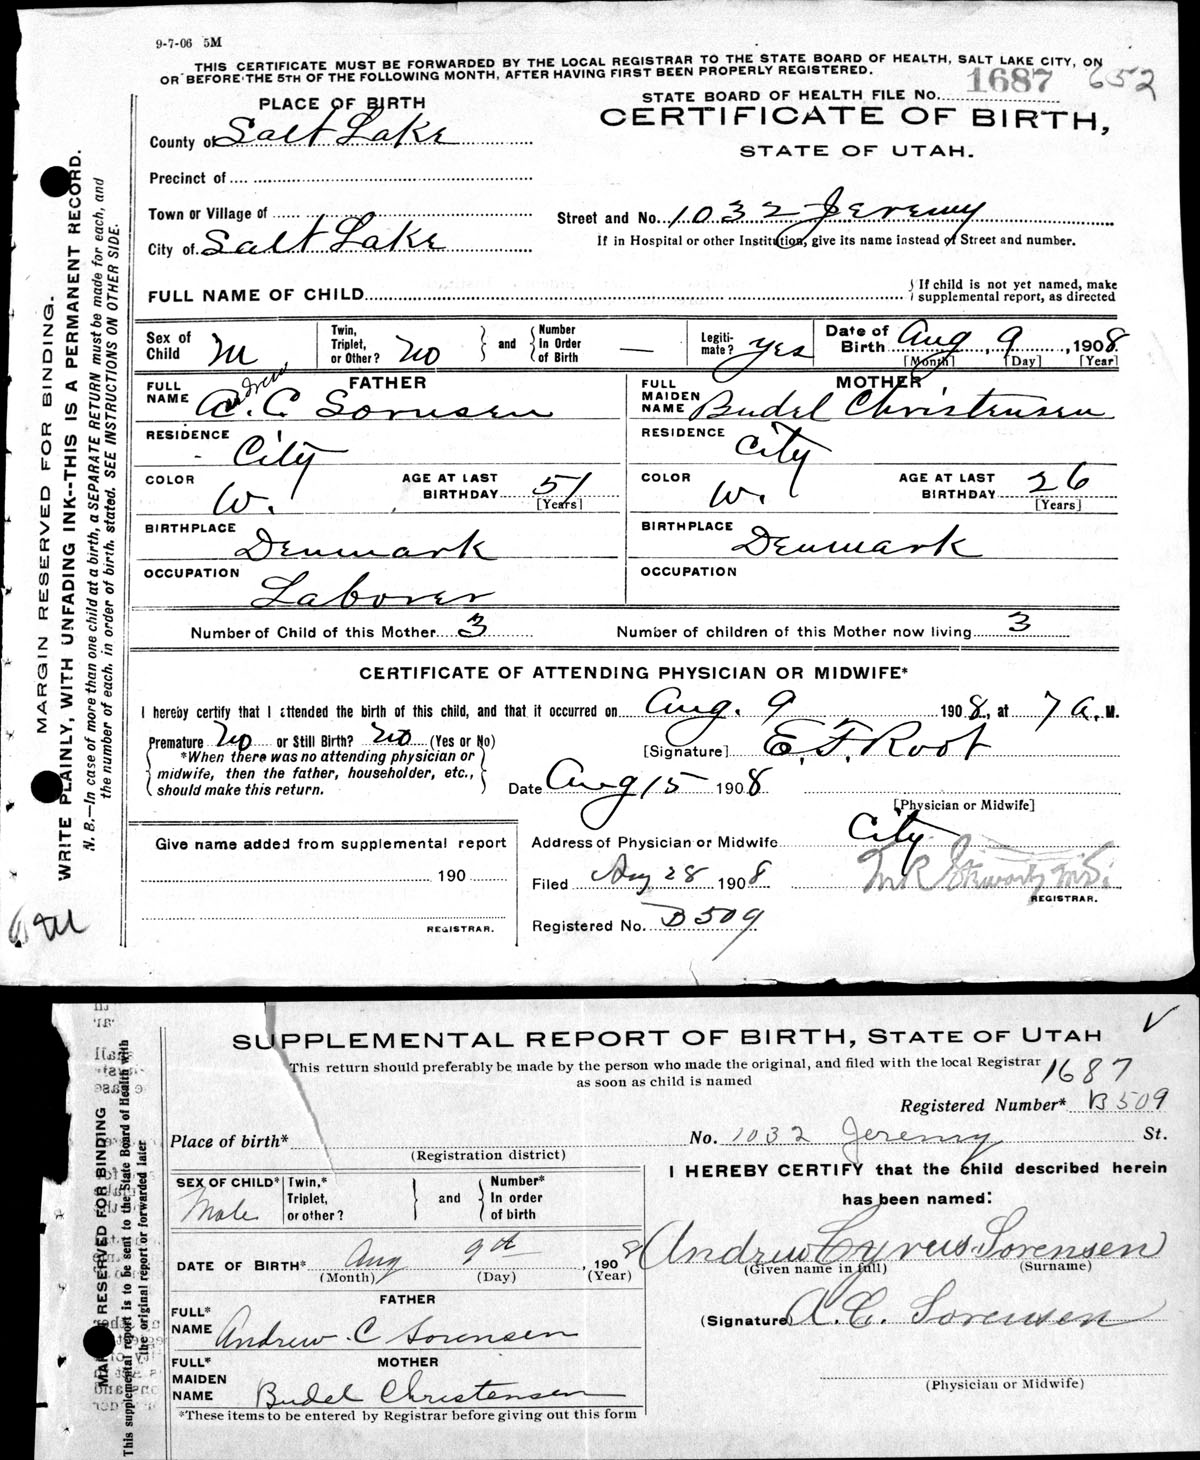 9-7-06 5M
THIS CERTIFICATE MUST BE FORWARDED BY THE LOCAL REGISTRAR TO THE STATE BOARD OF HEALTH, SALT LAKE CITY, ON
OR BEFORE THE 5TH OF THE FOLLOWING MONTH, AFTER HAVING FIRST BEEN PROPERLY REGISTERED.
STATE BOARD OF HEALTH FILE No. 1687 652
CERTIFICATE OF BIRTH,
STATE OF UTAH.
PLACE OF BIRTH
County of Salt Lake
Precinct of
Town or Village of
City of Salt Lake
Street and No. 1032 Jeremy
If in Hospital or other Institution, give its name instead of Street and number.
FULL NAME OF CHILD
If child is not yet named, make
supplemental report, as directed
Sex of Child M
Twin, Triplet, or Other? No
and
Number In Order of Birth —
Legitimate? yes
Date of Birth Aug 9, 1908
[Month] [Day] [Year]
FATHER
FULL NAME Andrew C. Sorensen
RESIDENCE City
COLOR W.
AGE AT LAST BIRTHDAY 51 [Years]
BIRTHPLACE Denmark
OCCUPATION Laborer
MOTHER
FULL MAIDEN NAME Budel Christensen
RESIDENCE City
COLOR W.
AGE AT LAST BIRTHDAY 26 [Years]
BIRTHPLACE Denmark
OCCUPATION
Number of Child of this Mother 3
Number of children of this Mother now living 3
CERTIFICATE OF ATTENDING PHYSICIAN OR MIDWIFE*
I hereby certify that I attended the birth of this child, and that it occurred on Aug. 9 1908, at 7 A. M.
Premature No or Still Birth? No (Yes or No)
*When there was no attending physician or
midwife, then the father, householder, etc.,
should make this return.
[Signature] E. F. Root
Date Aug 15 1908
[Physician or Midwife]
Address of Physician or Midwife City
Give name added from supplemental report
190
REGISTRAR.
Filed Aug 28 1908
REGISTRAR.
Registered No. B 509
MARGIN RESERVED FOR BINDING.
WRITE PLAINLY, WITH UNFADING INK--THIS IS A PERMANENT RECORD.
N. B.—In case of more than one child at a birth, a SEPARATE RETURN must be made for each, and
the number of each, in order of birth, stated. SEE INSTRUCTIONS ON OTHER SIDE.
SUPPLEMENTAL REPORT OF BIRTH, STATE OF UTAH
This return should preferably be made by the person who made the original, and filed with the local Registrar
as soon as child is named
1687
Registered Number* B 509
Place of birth*
(Registration district)
No. 1032 Jeremy St.
SEX OF CHILD* Male
Twin,* Triplet, or other?
and
Number* In order of birth
DATE OF BIRTH* Aug 9th, 1908
(Month) (Day) (Year)
FATHER
FULL* NAME Andrew C Sorensen
MOTHER
FULL* MAIDEN NAME Budel Christensen
*These items to be entered by Registrar before giving out this form
I HEREBY CERTIFY that the child described herein
has been named:
Andrew Cyrus Sorensen
(Given name in full) (Surname)
(Signature A. C. Sorensen
(Physician or Midwife)
RESERVED FOR BINDING
This supplemental report is to be sent to the State Board of Health with
the original report or forwarded later